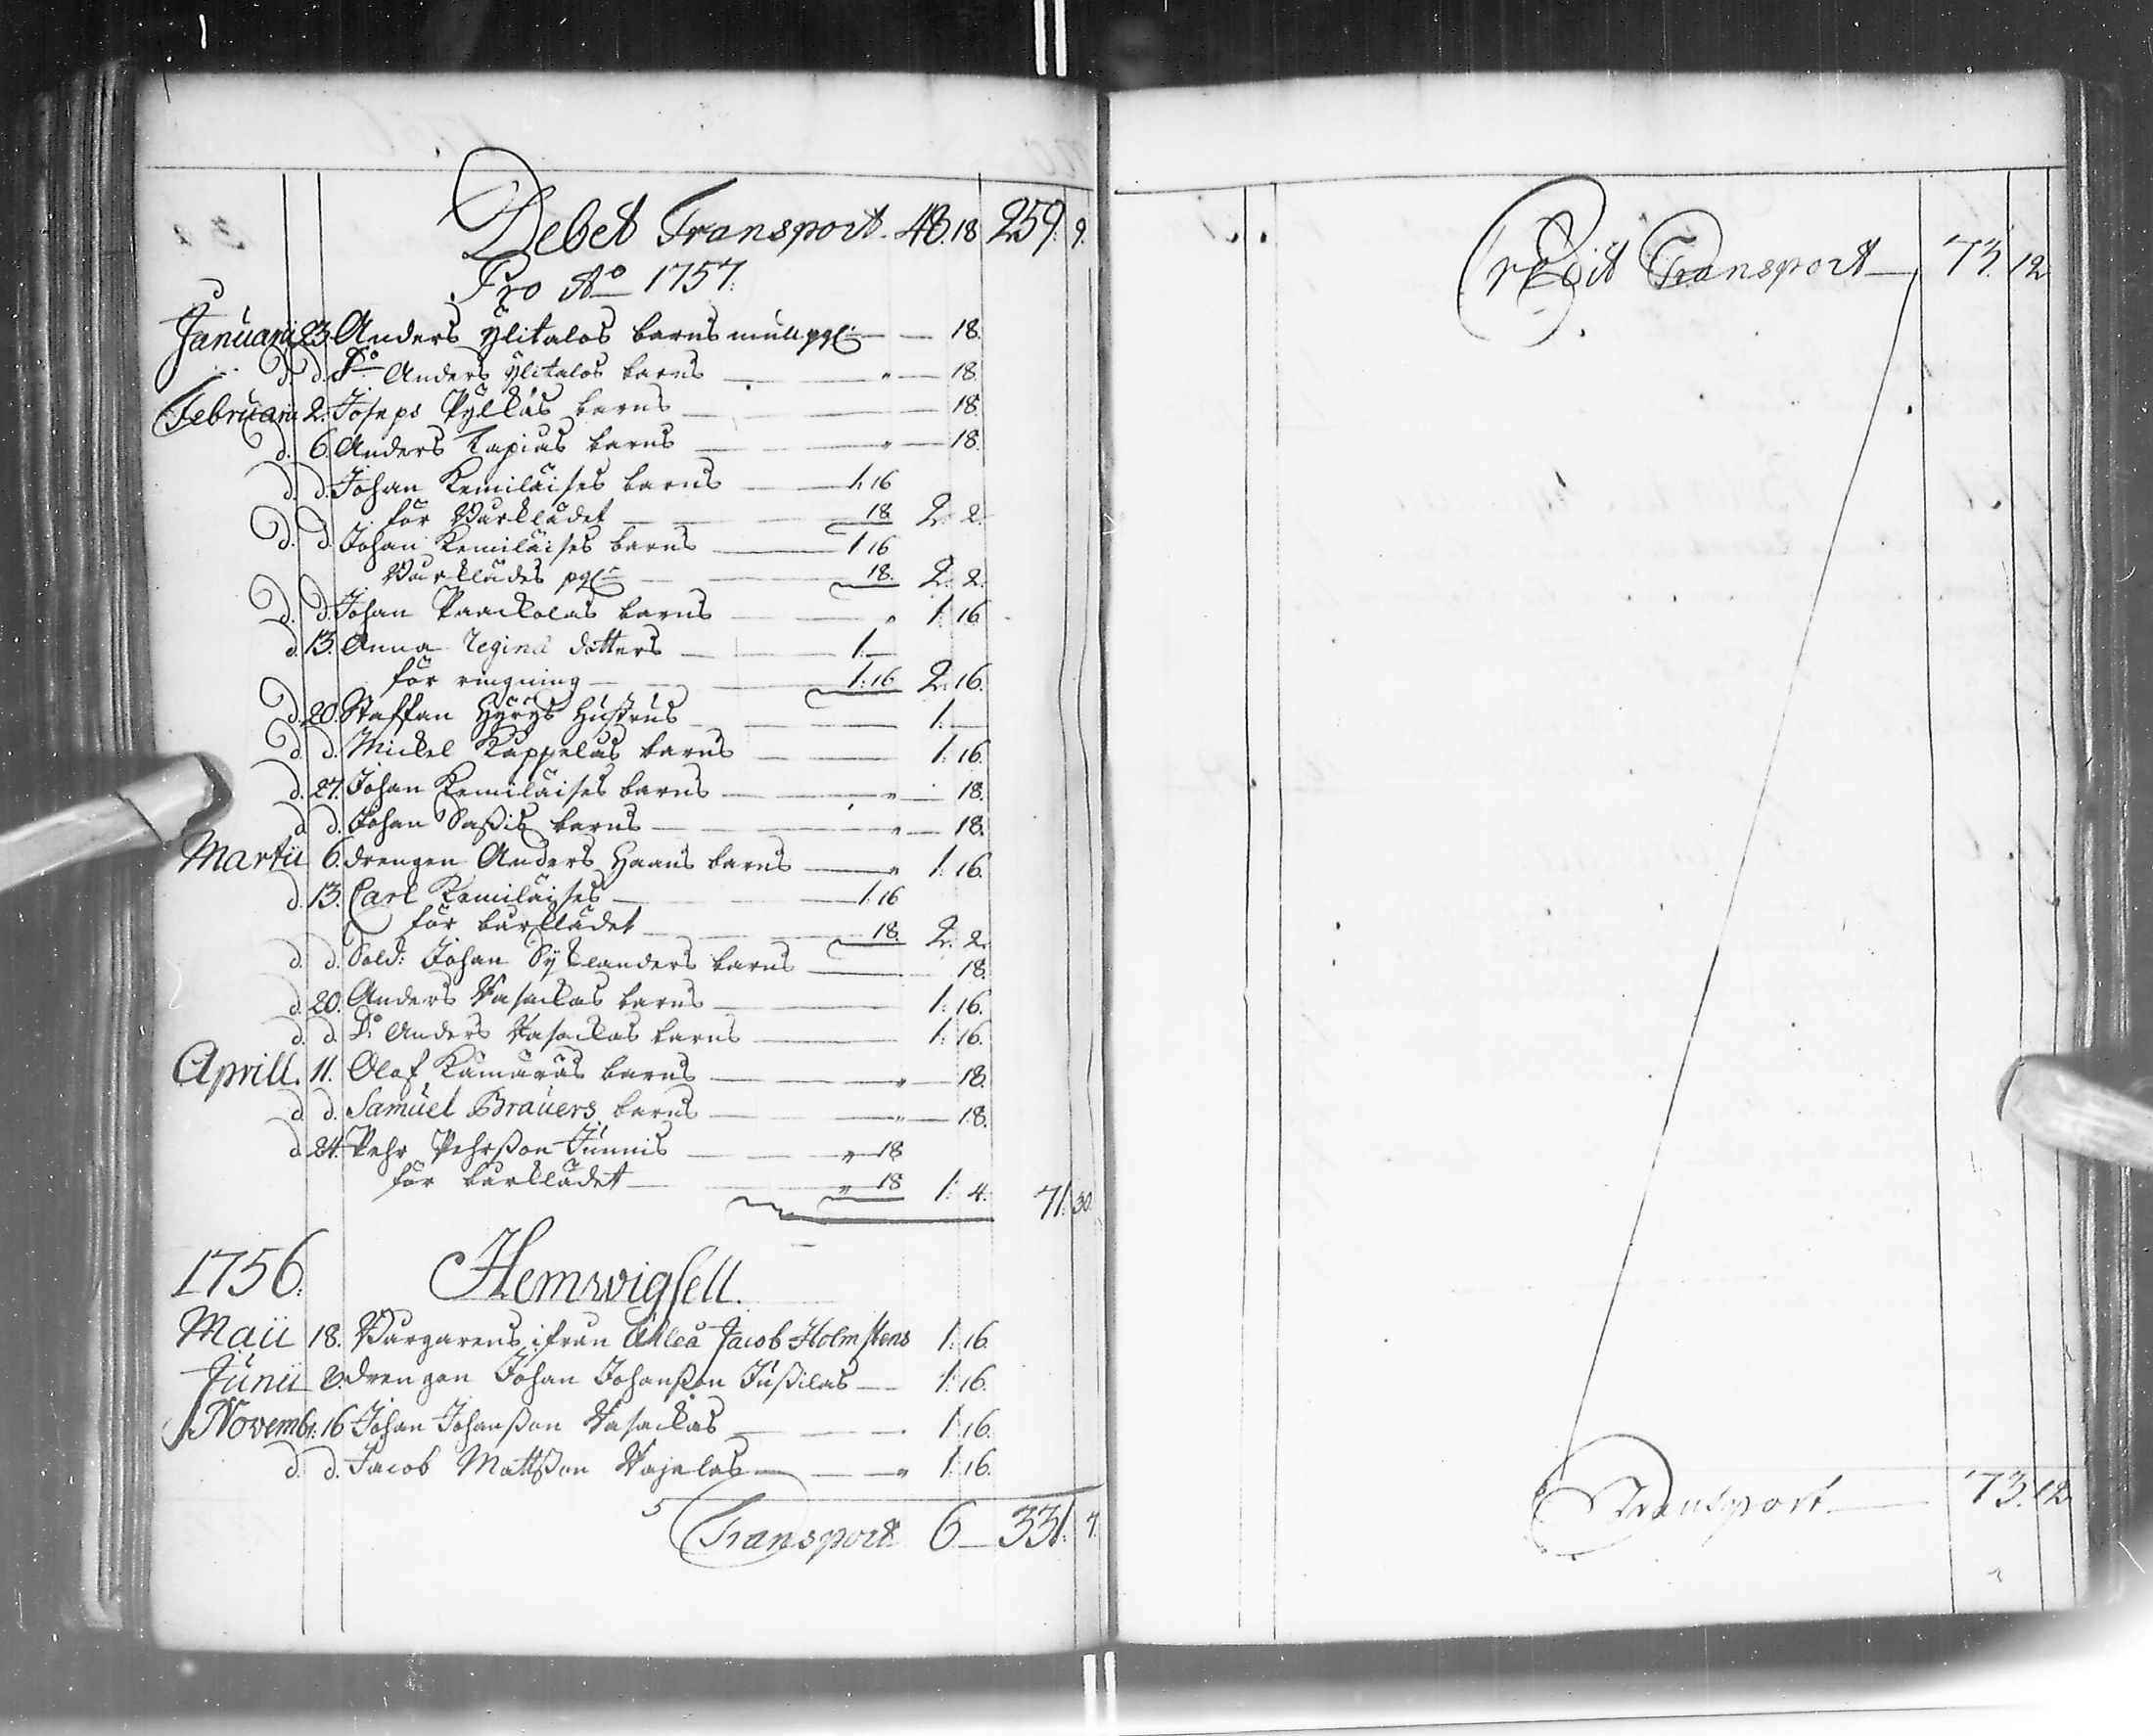 Debet Transport. 48. 18 259. 9.
Pro Ao 1757.
Januarii 23. Anders Ylitalos barns mullpgr — 18.
d. d. Do Anders Ylitalos barns — 18.
Februarii 2. Joseps Pylkäs barns — 18.
d. 6. Anders Tapias barns — 18.
d. d. Johan Kemiläises barns — 1: 16
för Bårklädet — 18. 2: 2.
d. d. Johan Kemiläises barns — 1: 16
Bårklädes pgr — 18. 2: 2.
d. d. Johan Paackolas barns — 1: 16.
d. 13. Anna Regina dotters — 1: —
för ringning — 1: 16 2: 16.
d. 20. Staffan Hyrys Hustrus — 1: —
d. d. Mickel Kappelas barns — 1: 16.
d. 27. Johan Kemiläises barns — 18.
d. d. Johan Saßis barns — 18.
Martii 6. drengen Anders Haans barns — 1: 16.
d. 13. Carl Kemiläises — 1: 16
för bårklädet — 18. 2: 2.
d. d. Sold: Johan barns — 18.
d. 20. Anders Vasackas barns — 1: 16.
d. d. Do Anders Vasackas barns — 1: 16.
Aprill. 11. Olof Kämäräs barns — 18.
d. d. Samuel Brauers barns — 18.
d. 24. Pehr Pehrßon Junnis — 18
för bårklädet — 18 1: 4. 71: 30.
1756. Hemwigsell.
Maii 18. Borgarens ifrån Uhleå Jacob Holmstens 1: 16.
Junii 3. drengen Johan Johanßon Jußilas — 1: 16.
Novembr: 16 Johan Johanßon Vasackas — 1: 16.
d. d. Jacob Mattßon Vajalas — 1: 16.
Transport 6 — 331: 7.
Credit Transport — 73. 12
Transport — 73. 12